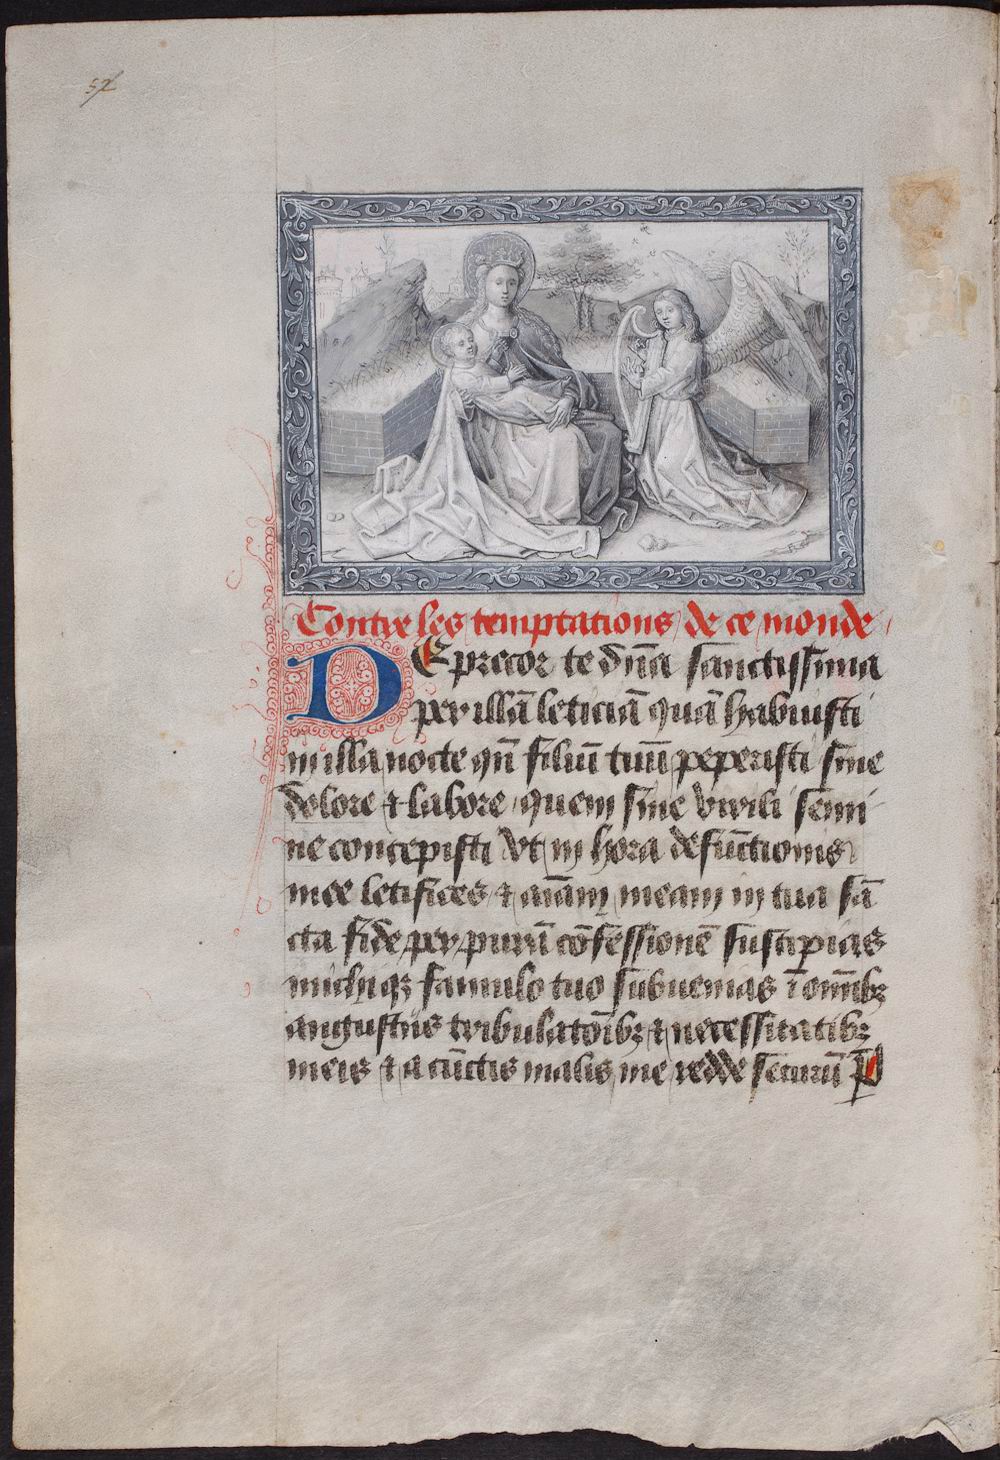 52
Contre les temptations de ce monde
DEprecor te dn̄a sanctissima
per illā leticiā quā habuisti
in illa nocte qn̄ filiū tuū peperisti sine
dolore ⁊ labore quem sine virili semi
ne concepisti Vt in hora defūctionis
mee letifices ⁊ aīam meam in tua sā
cta fide per purā cōfessionē suscipias
michiqꝫ famulo tuo subuenias ī om̄ibꝫ
angustiis tribulatōibꝫ ⁊ necessitatibꝫ
meis ⁊ a cūctis malis me redde securū